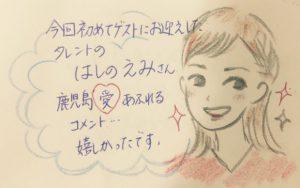 今回初めてゲストにお迎えした
タレントの
はしのえみさん
鹿児島愛あふれる
コメント…
嬉しかったです。